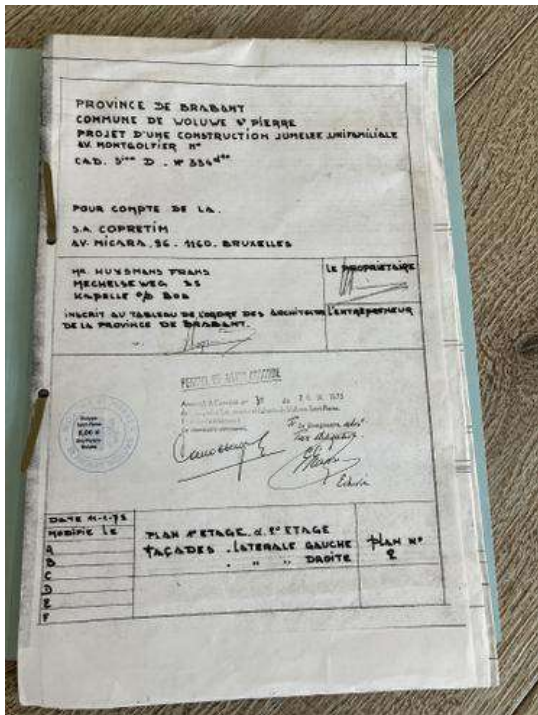 PROVINCE DE BRABANT
COMMUNE DE WOLUWE St PIERRE
PROJET D'UNE CONSTRUCTION JUMELEE UNIFAMILIALE
AV. MONTGOLFIER N°
CAD. 5ème D. N° 334
POUR COMPTE DE LA.
S.A. COPRETIM
AV. MICARA. 96. 1160. BRUXELLES
MR. HUYSMANS FRANS
MECHELSE WEG
KAPELLE O/D BOS
INSCRIT AU TABLEAU DE L'ORDRE DES ARCHITECTES
DE LA PROVINCE DE BRABANT.
LE PROPRIETAIRE
L'ENTREPRENEUR
DATE 11-1-75
MODIFIE LE
A
B
C
D
E
F
PLAN 1° ETAGE. & 2° ETAGE
FAÇADES. LATERALE GAUCHE
" " DROITE
PLAN N°
2